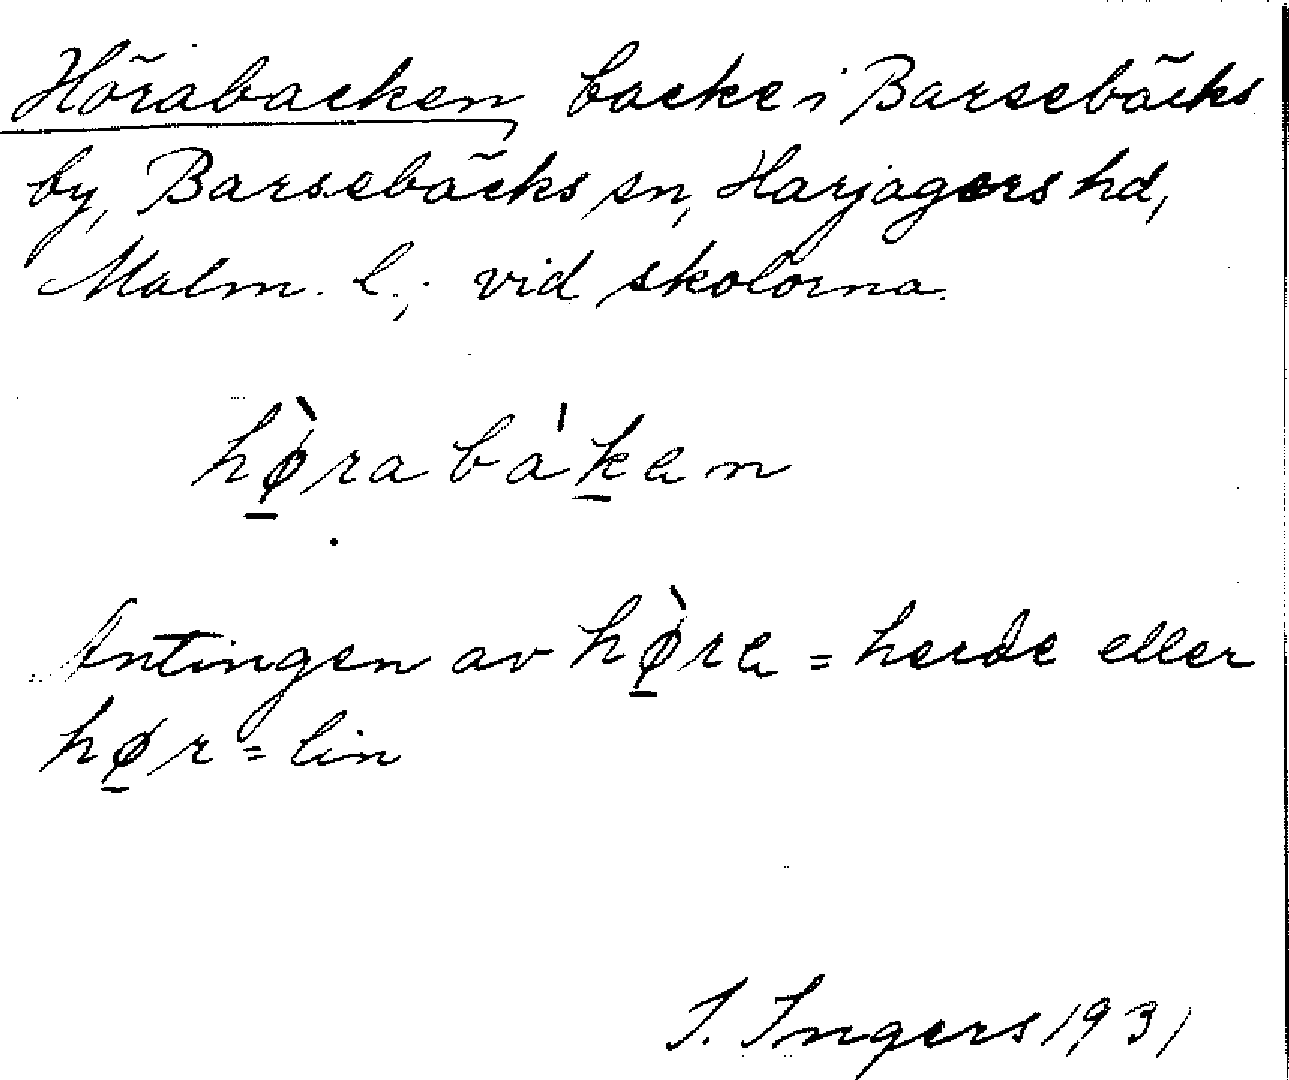 Hörabacken, backe i Barsebäcks
by, Barsebäcks sn, Harjagers hd,
Malm. l.; vid skolorna.
hø̠̀raba̍k̠en
Antingen av hø̠̀re = herde eller
hø̠r = lin
I. Ingers 1931